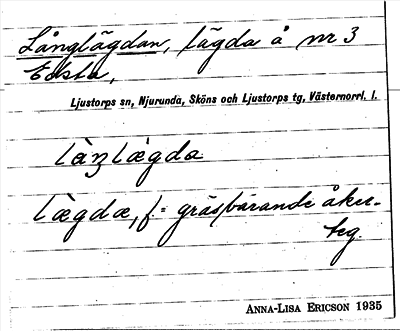 Långlägdan, lägda å nr 3
Edsta,
Ljustorps sn, Njurunda, Sköns och Ljustorps tg, Västernorrl. l.
làŋlægda
lægdæ, f = gräsbärande åker-
teg.
ANNA-LISA ERICSON 1935